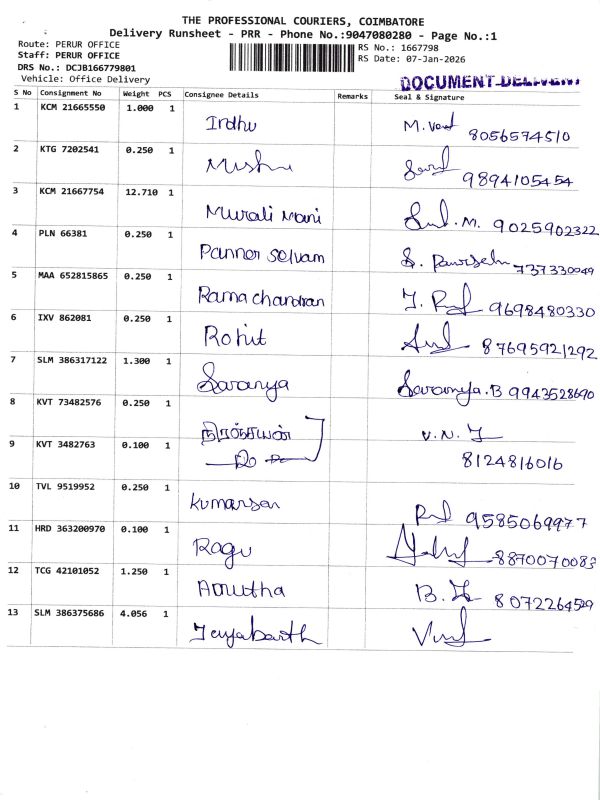 THE PROFESSIONAL COURIERS, COIMBATORE
Delivery Runsheet - PRR - Phone No.:9047080280 - Page No.:1
Route: PERUR OFFICE
Staff: PERUR OFFICE
DRS No.: DCJB166779801
Vehicle: Office Delivery
RS No.: 1667798
RS Date: 07-Jan-2026
DOCUMENT DELIVERY
S No Consignment No Weight PCS Consignee Details Remarks Seal & Signature
1 KCM 21665550 1.000 1 Indhu 8056574510
2 KTG 7202541 0.250 1 9894105454
3 KCM 21667754 12.710 1 Murali Mani 9025902322
4 PLN 66381 0.250 1 Panner Selvam 737330049
5 MAA 652815865 0.250 1 Rama chandran 9698480330
6 IXV 862081 0.250 1 Rohit 87695921292
7 SLM 386317122 1.300 1 Saranya Saranya.B 9943528690
8 KVT 73482576 0.250 1 V.N.
9 KVT 3482763 0.100 1 8124816016
10 TVL 9519952 0.250 1 Kumarsan 9585069977
11 HRD 363200970 0.100 1 Ragu 8870070083
12 TCG 42101052 1.250 1 8072264529
13 SLM 386375686 4.056 1